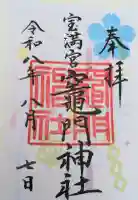 奉拝
宝満宮
竈門神社
令和八年八月七日